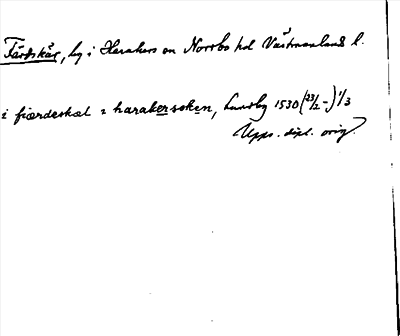 Färdskäl, by i Haraker sn Norrbo hd Västmanland l.
i fiærdeskæl i harakersoken, Lundby 1530 (23/2-) 1/3
Upps. dipl. orig.